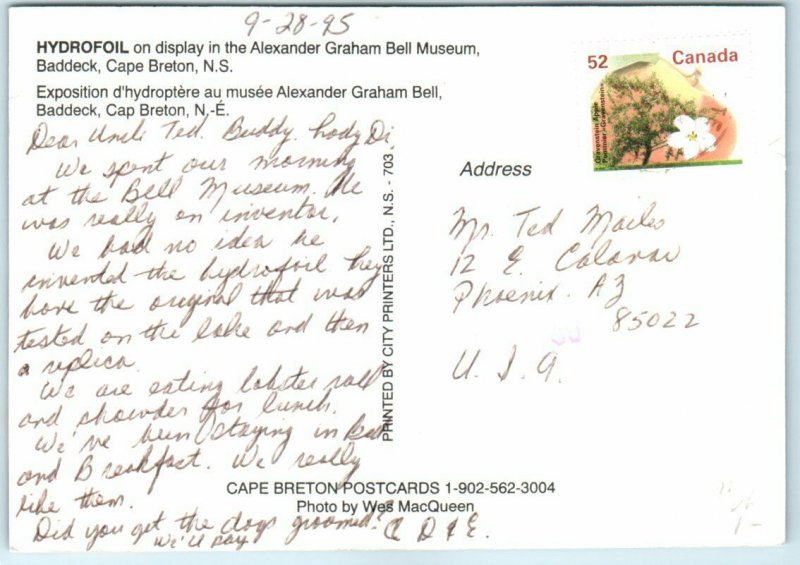 9-28-95
HYDROFOIL on display in the Alexander Graham Bell Museum,
Baddeck, Cape Breton, N.S.
Exposition d'hydroptère au musée Alexander Graham Bell,
Baddeck, Cap Breton, N.-É.
Dear Uncle Ted, Buddy, Lady Di,
We spent our morning
at the Bell Museum. He
was really an inventor.
We had no idea he
invented the hydrofoil they
have the original that was
tested on the lake and then
a replica.
We are eating lobster roll
and chowder for lunch.
We've been staying in Bed
and Breakfast. We really
like them.
Did you get the dogs groomed?
We'll pay
C D & E.
PRINTED BY CITY PRINTERS LTD., N.S. - 703
52 Canada
Gravenstein Apple
Pommier «Gravenstein»
Address
Mr. Ted
12 E.
Phoenix, AZ
85022
U.S.A.
CAPE BRETON POSTCARDS 1-902-562-3004
Photo by Wes MacQueen